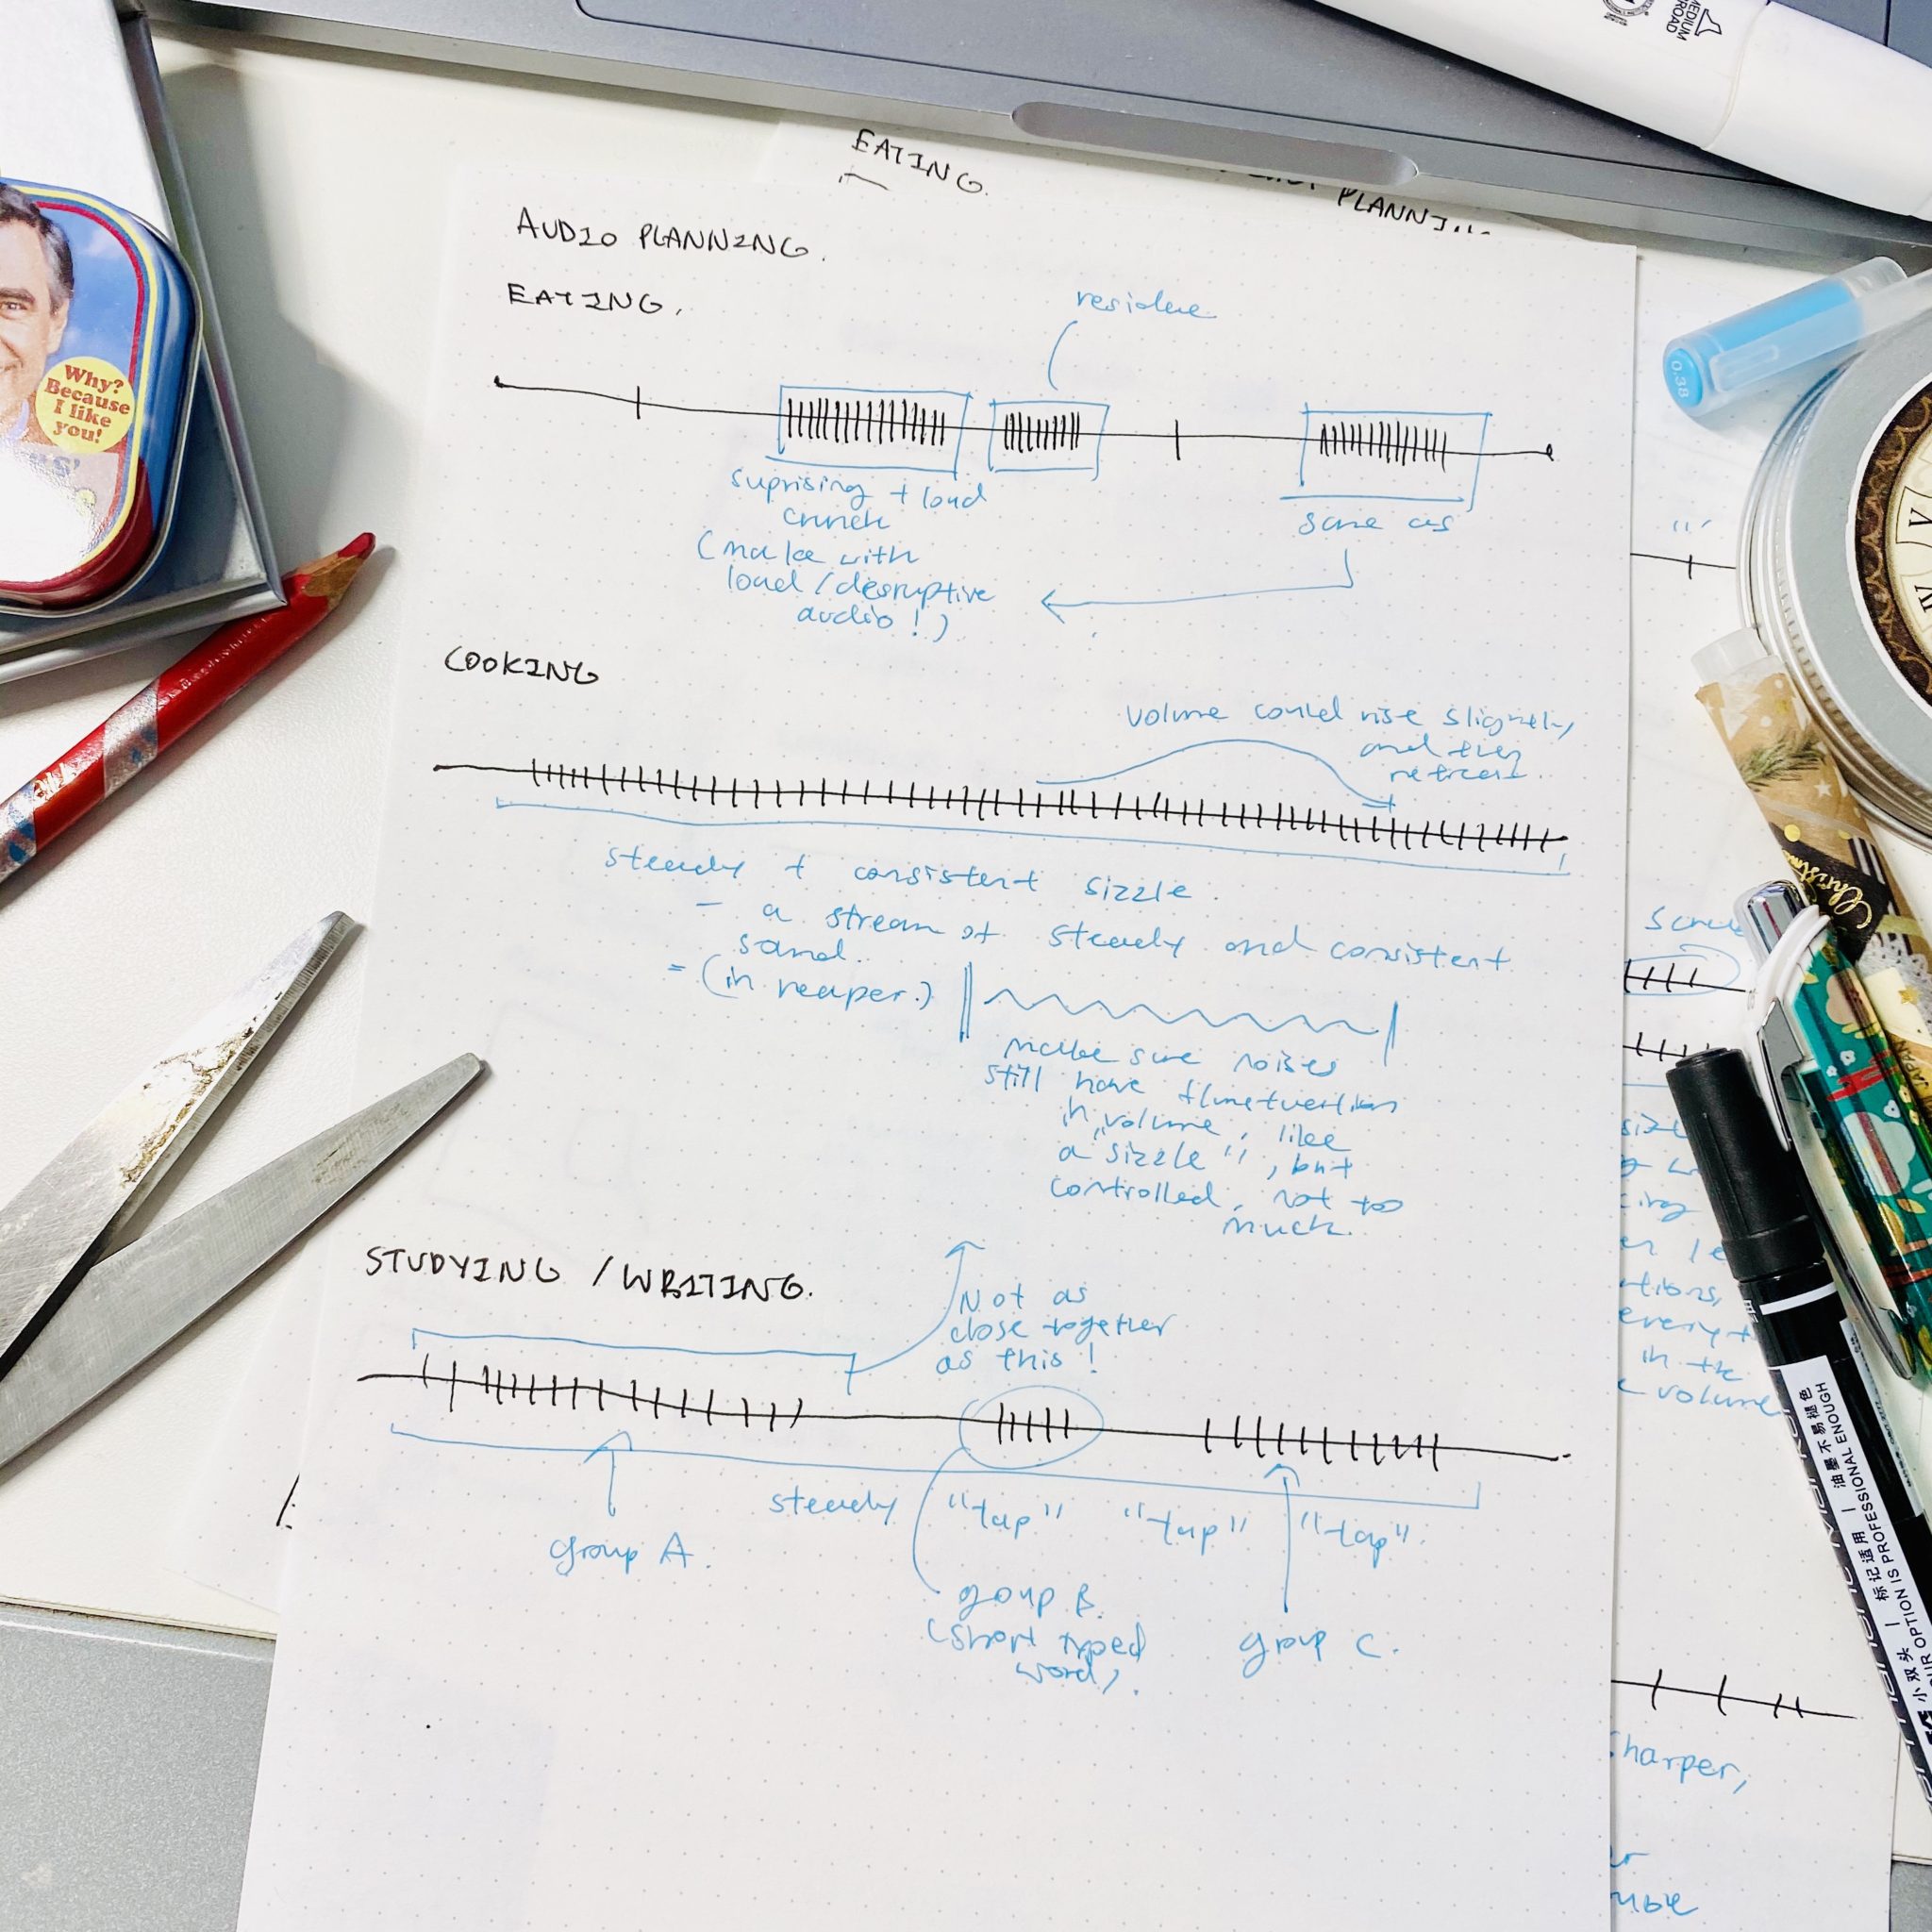 MEDIUM
BROAD
EATING.
AUDIO PLANNING.
EATING.
residue
suprising + loud
crunch
(make with
loud/desruptive
audio!)
same as
Why?
Because
I like
you!
0.38
COOKING
volume could rise slightly
and then
retreat.
steady + consistent sizzle.
- a stream of steady and consistent
sand.
= (in reaper.)
make sure noises
still have
in volume, like
a "sizzle", but
controlled, not too
much.
STUDYING / WRITING.
Not as
close together
as this!
steady "tap" "tap" "tap".
group A.
group B.
(short typed
word).
group C.
Christ
in the
volume
harper,
油墨不易褪色
标记适用
小双头
OUR OPTION IS PROFESSIONAL ENOUGH